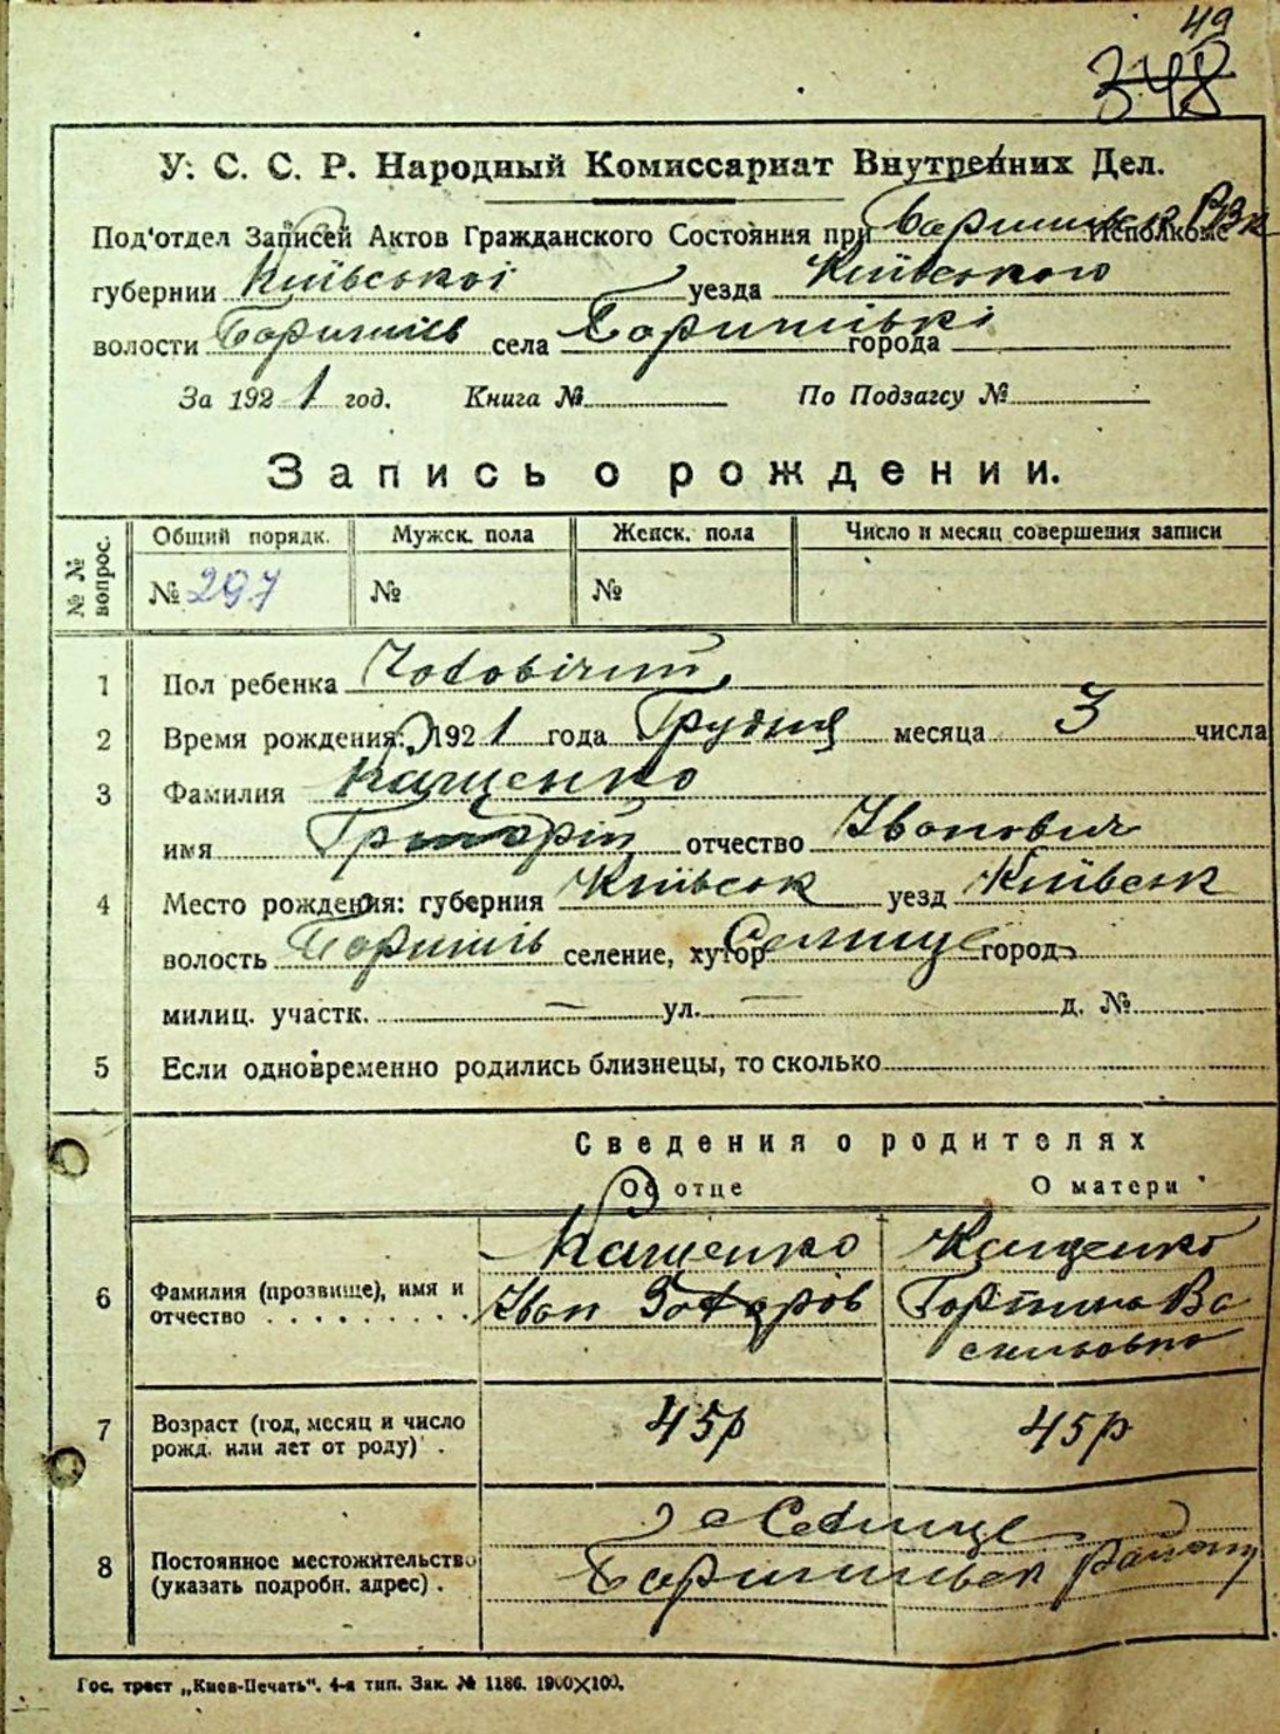 49
348
У. С. С. Р. Народный Комиссариат Внутренних Дел.
Под'отдел Записей Актов Гражданского Состояния при Баришівск РВК Исполкоме
губернии Київської уезда Київського
волости Баришів села Баришівкі города
За 1921 год. Книга № По Подзагсу №
Запись о рождении.
№ № вопрос. Общий порядк. Мужск. пола Женск. пола Число и месяц совершения записи
№ 297 № №
1 Пол ребенка Чоловічий
2 Время рождения: 1921 года Грудня месяца 3 числа
3 Фамилия Кащенко
имя Григорій отчество Іванович
4 Место рождения: губерния Київськ уезд Київськ
волость Баришів селение, хутор Селище город
милиц. участк. — ул. — д. №
5 Если одновременно родились близнецы, то сколько
Сведения о родителях
Об отце О матери
6 Фамилия (прозвище), имя и отчество Кащенко Іван Захаров Кащенко Горпина Васильовна
7 Возраст (год, месяц и число рожд. или лет от роду). 45р 45р
8 Постоянное местожительство (указать подробн. адрес). с Селище
Баришівськ району
Гос. трест „Киев-Печать". 4-я тип. Зак. № 1186. 1900×100.